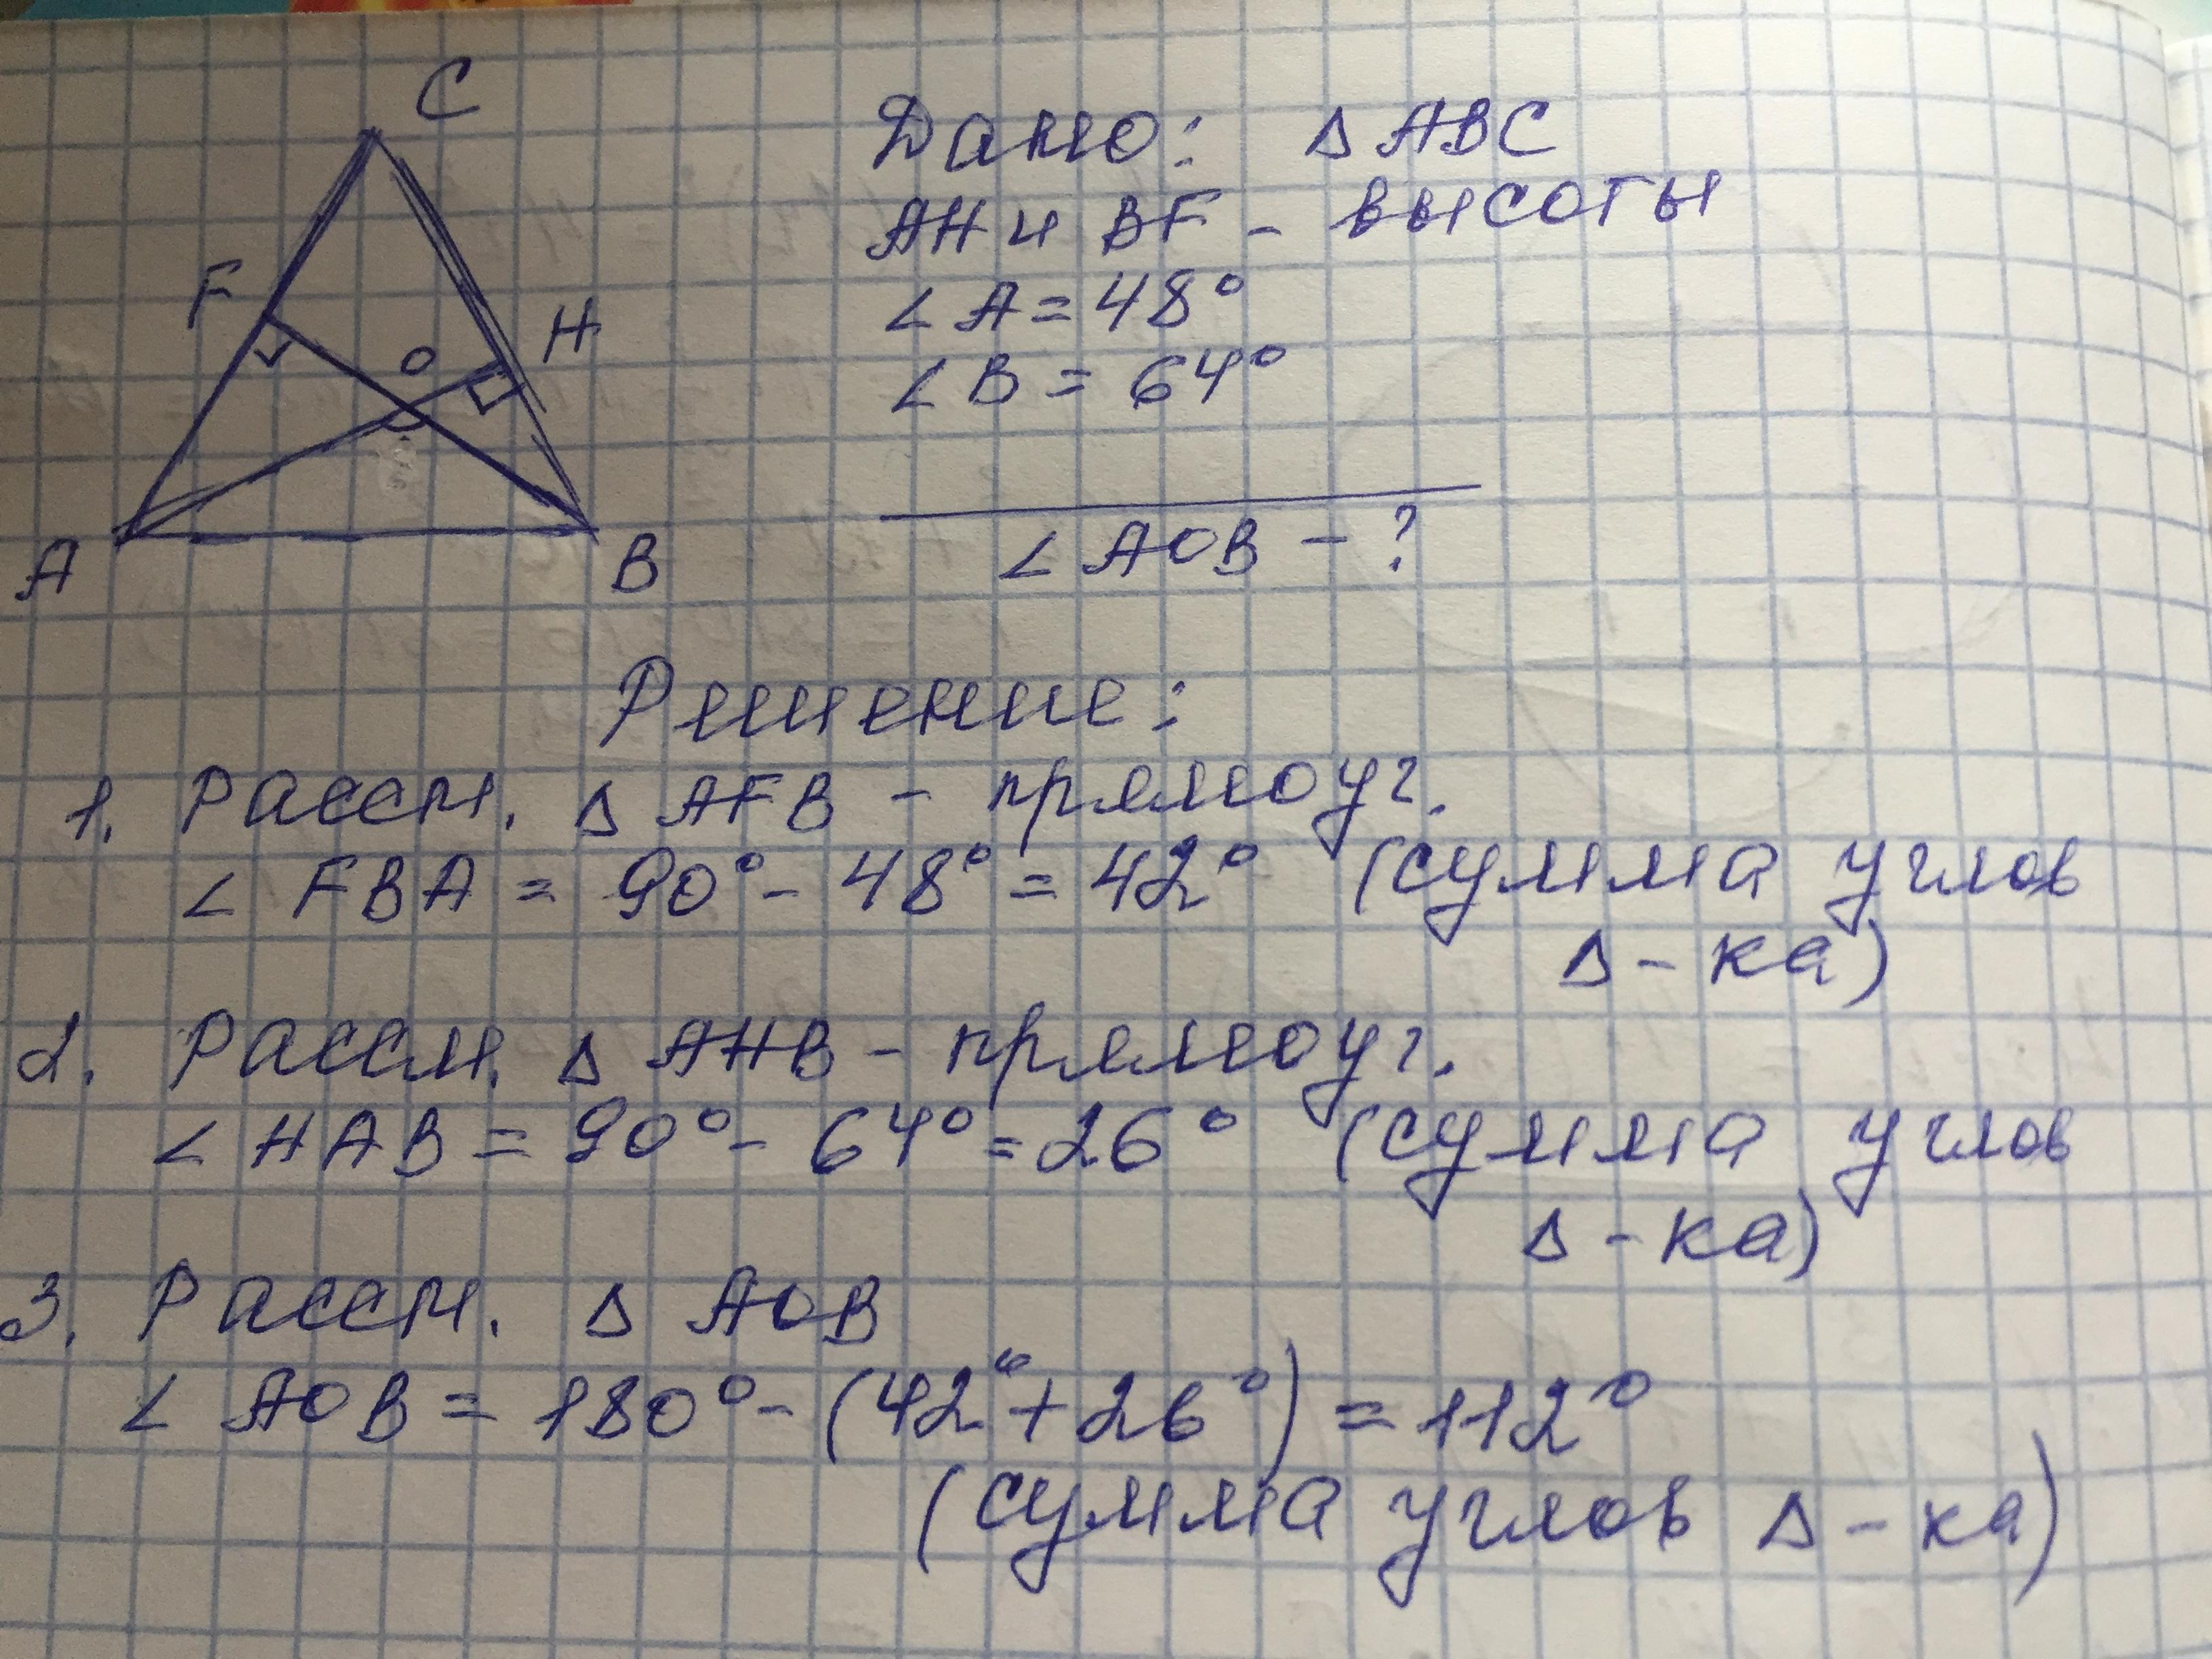 C
F
H
O
A
B
Дано: Δ ABC
AH и BF - высоты
∠ A = 48°
∠ B = 64°
∠ AOB - ?
Решение:
1. Рассм. Δ AFB - прямоуг.
∠ FBA = 90° - 48° = 42° (сумма углов
Δ - ка)
2. Рассм. Δ AHB - прямоуг.
∠ HAB = 90° - 64° = 26° (сумма углов
Δ - ка)
3. Рассм. Δ AOB
∠ AOB = 180° - (42° + 26°) = 112°
(сумма углов Δ - ка)